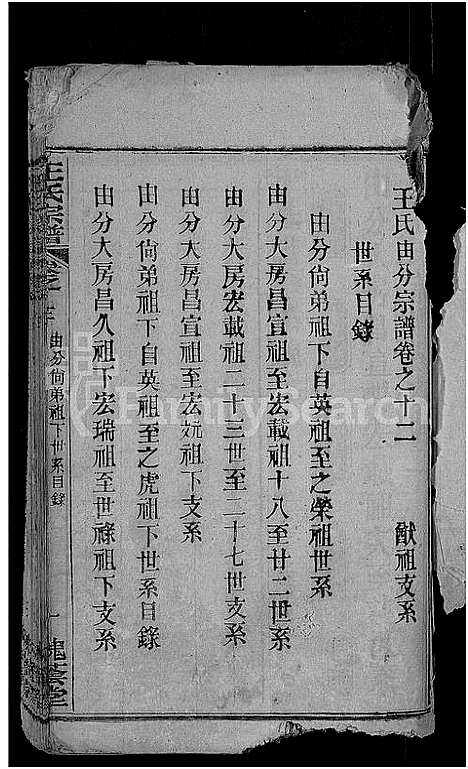 王氏由分宗譜卷之十二　獻祖支系
世系目錄
由分尙弟祖下自英祖至之榮祖世系
由分大房昌宣祖至宏載祖十八至廿二世系
由分大房宏載祖二十三世至二十七世支系
由分大房昌宣祖至宏𡊮祖下支系
由分尙弟祖下自英祖至之虎祖下世系目錄
由分大房昌久祖下宏瑞祖至世祿祖下支系
王氏宗譜
卷之
由分尙弟祖下世系目錄
一
槐蔭堂
FamilySearch